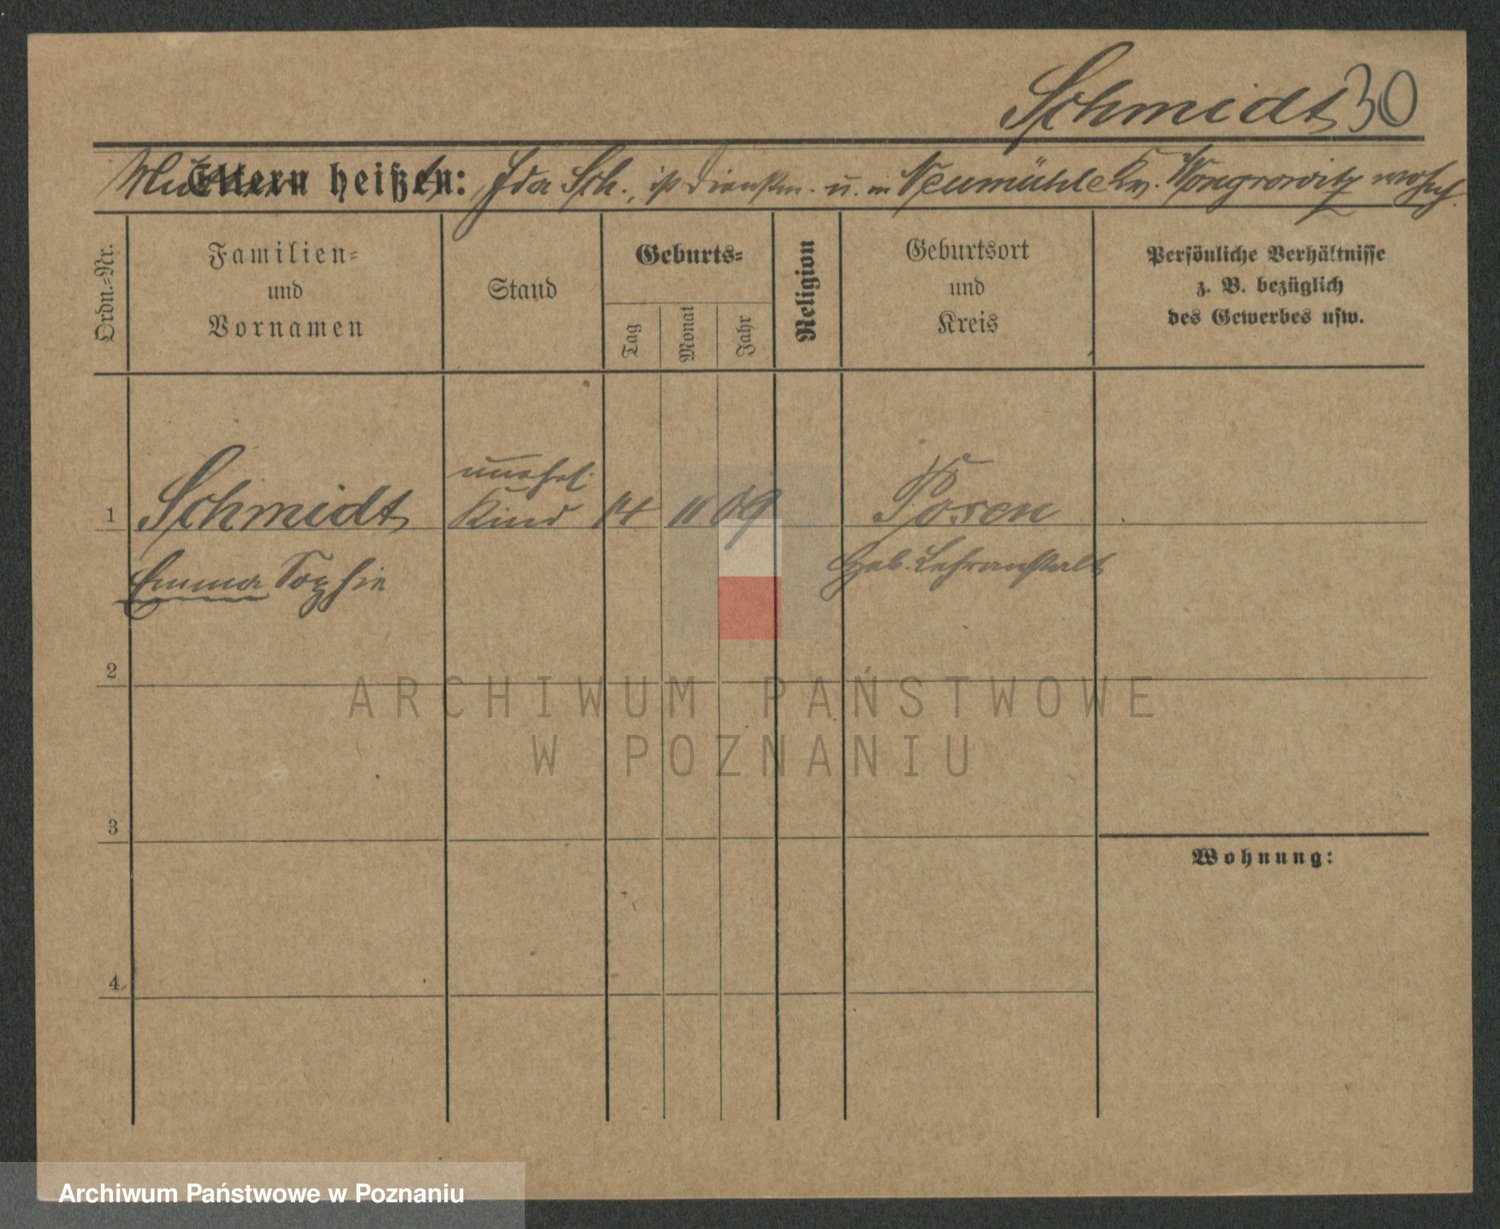 Schmidt 30
Mutter heißt: Ida Sch., ist Dienstm. u. in Neumühle Kr. Wongrowitz wohnh.
Ordn.=Nr.
Familien=
und
Vornamen
Stand
Geburts=
Tag
Monat
Jahr
Religion
Geburtsort
und
Kreis
Persönliche Verhältnisse
z. B. bezüglich
des Gewerbes usw.
1 Schmidt unehel. Kind 14 11 09 Posen
Emma Sophie Heb. Lehranstalt
2
3
Wohnung:
4
ARCHIWUM PAŃSTWOWE
W POZNANIU
Archiwum Państwowe w Poznaniu